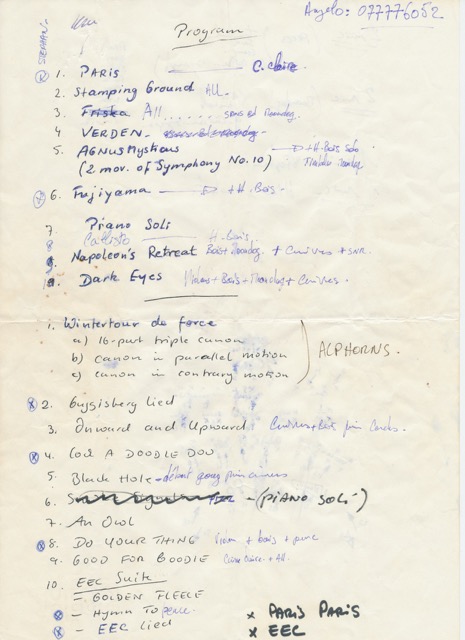 Angelo: 077776052
Program
STEPHAN.
1. PARIS C. claire
2. Stamping Ground ALL.
3 Friska All...... sans
4 VERDEN.
5. AGNUS Mysticus + H-Bois Solo
(2 mov. of Symphony No. 10)
6. Fujiyama + H. Bois -
7 Piano Soli
8 Callisto H. Bois
9. Napoleon's Retreat Bois + Moondog. + Cuivres + SNR.
Dark Eyes + Bois + Moondog + Cuivres.
1. Wintertour de force
a) 16-part triple canon
b) canon in parallel motion
c) canon in contrary motion
ALPHORNS.
2. Guggisberg Lied
3. Onward and Upward Cuivres +
4. COCK A DOODLE DOO
5. Black Hole -
6. - (PIANO SOLI)
7. An Owl
8. DO YOUR THING + bois + perc
9. GOOD FOR GOODIE + All.
10. EEC Suite
- GOLDEN FLEECE
- Hymn To peace.
- EEC Lied
x PARIS PARIS
x EEC